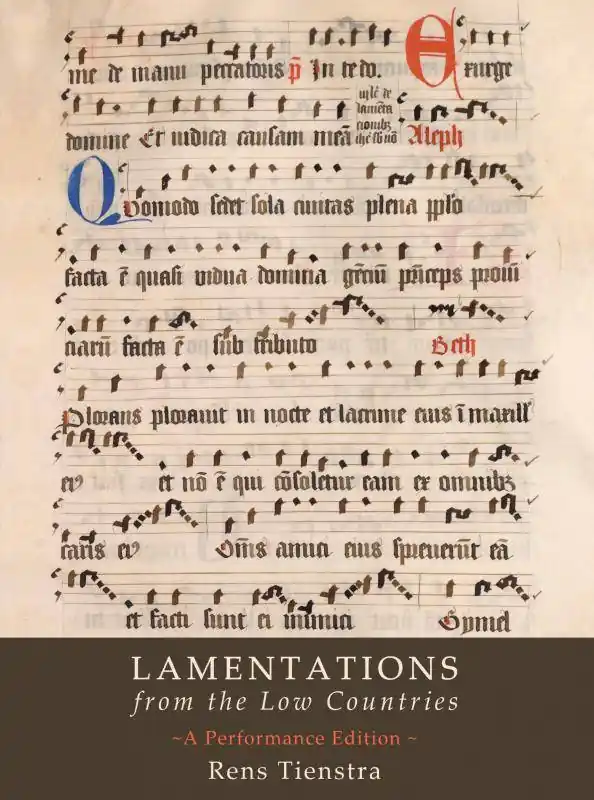 me de manu peccatoris p̄ In te do. Exurge
domine Et iudica causam meā Aleph
Quomodo sedet sola ciuitas plena pplo
facta ē quasi vidua domina gēciū p̄nceps prouī
ciarū facta ē sub tributo Beth
Plorans plorauit in nocte et lacrime eius ī maxill'
ei9 et nō ē qui cōsoletur eam ex omnibꝫ
caris ei9 Om̄s amici eius spreuerūt eā
et facti sunt ei inimici Gymel
LAMENTATIONS
from the Low Countries
~A Performance Edition ~
Rens Tienstra